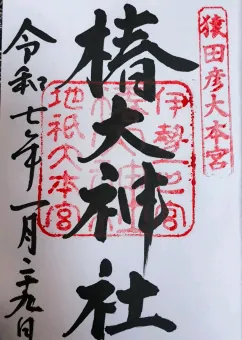 猿田彦大本宮
椿大神社
伊勢一宮
地祇大本宮
令和七年一月二十九日